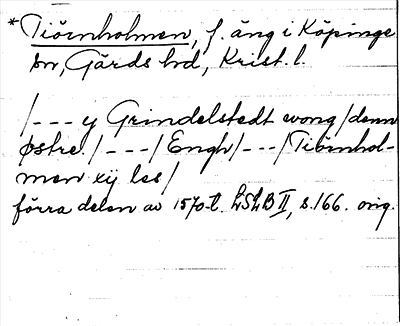 *Tiörnholmen, f. äng i Köpinge
sn, Gärds hd, Krist. l.
/--- y Grindelstedt wong/denn
østre./---/Engh/---/Tiörnhol-
men xij les/
förra delen av 1570-t. LSLB II, s.166. orig.